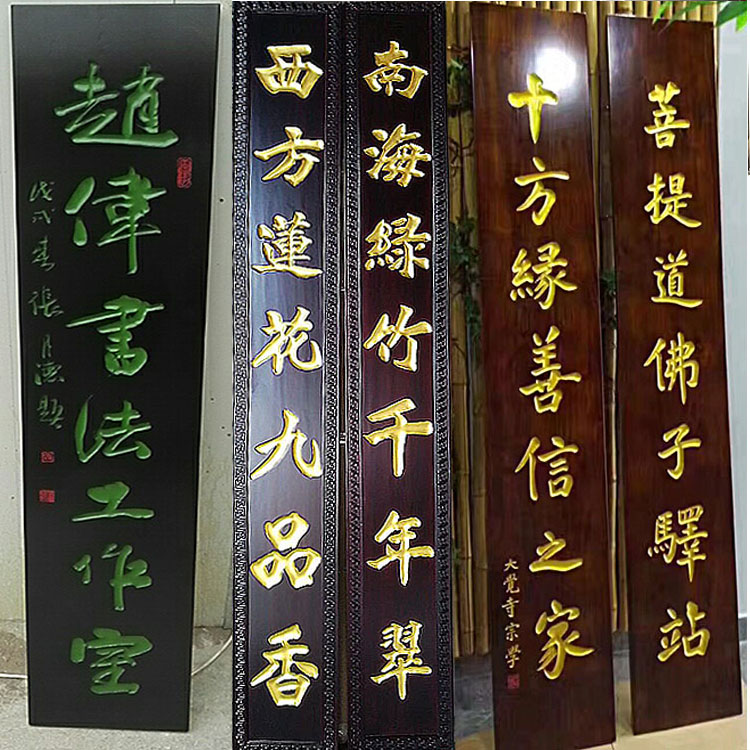 趙偉書法工作室
戊戌春張月德題
南海綠竹千年翠
西方蓮花九品香
菩提道佛子驛站
十方緣善信之家
大覺寺宗學